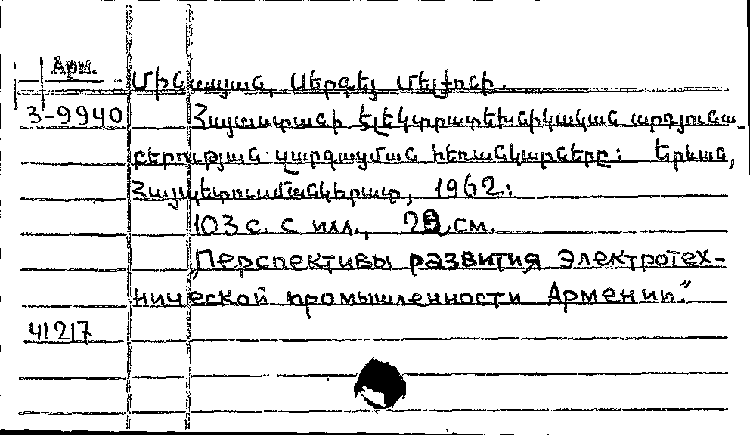 Арм.
Մինասյան, Սերգեյ Մելքոնի.
3-9940 Հայաստանի էլեկտրատեխնիկական արդյունա-
բերության զարգացման հեռանկարները: Երևան,
Հայպետուսմանկհրատ, 1962:
103 с. с илл., см.
„Перспективы развития электротех-
нической промышленности Армении."
41217